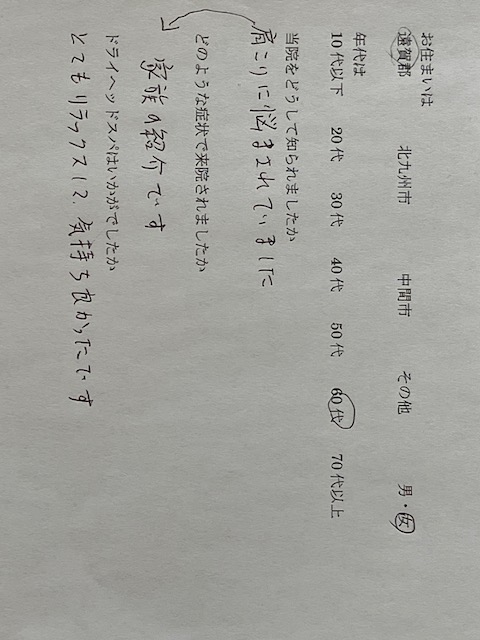 お住まいは
遠賀郡 北九州市 中間市 その他 男・女
年代は
10代以下 20代 30代 40代 50代 60代 70代以上
当院をどうして知られましたか
肩こりに悩まされていました
どのような症状で来院されましたか
家族の紹介です
ドライヘッドスパはいかがでしたか
とてもリラックスして、気持ち良かったです